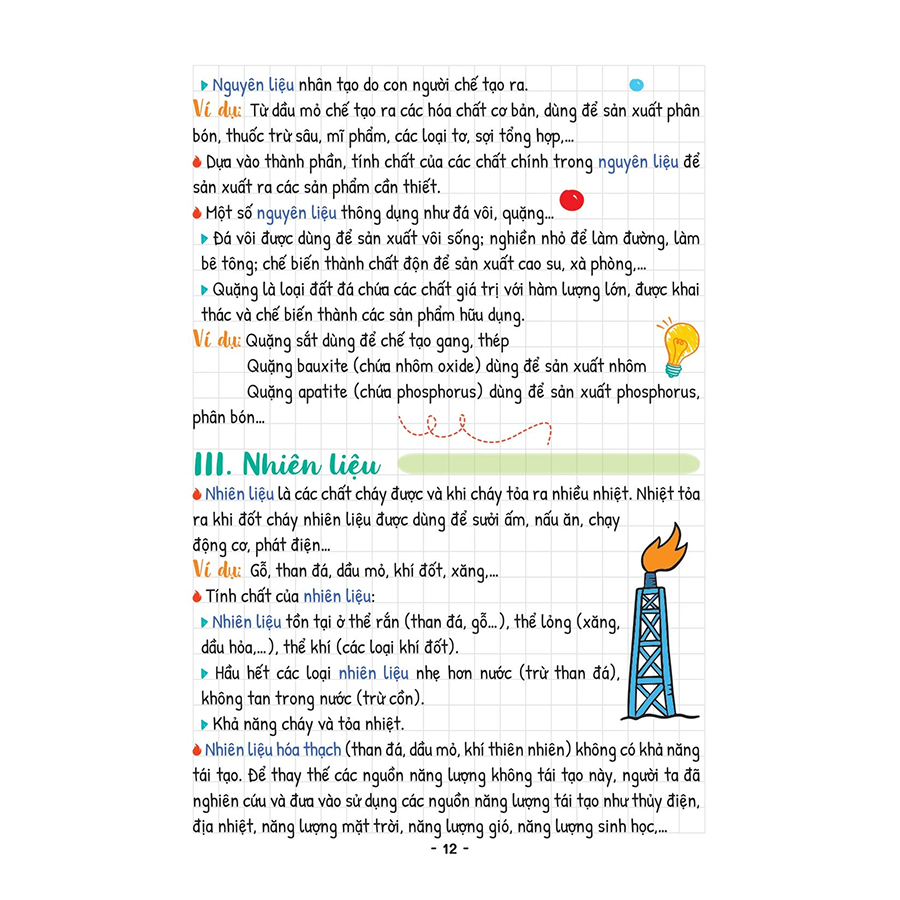 Nguyên liệu nhân tạo do con người chế tạo ra.
Ví dụ: Từ dầu mỏ chế tạo ra các hóa chất cơ bản, dùng để sản xuất phân
bón, thuốc trừ sâu, mĩ phẩm, các loại tơ, sợi tổng hợp,...
Dựa vào thành phần, tính chất của các chất chính trong nguyên liệu để
sản xuất ra các sản phẩm cần thiết.
Một số nguyên liệu thông dụng như đá vôi, quặng...
Đá vôi được dùng để sản xuất vôi sống; nghiền nhỏ để làm đường, làm
bê tông; chế biến thành chất độn để sản xuất cao su, xà phòng,...
Quặng là loại đất đá chứa các chất giá trị với hàm lượng lớn, được khai
thác và chế biến thành các sản phẩm hữu dụng.
Ví dụ: Quặng sắt dùng để chế tạo gang, thép
Quặng bauxite (chứa nhôm oxide) dùng để sản xuất nhôm
Quặng apatite (chứa phosphorus) dùng để sản xuất phosphorus,
phân bón...
III. Nhiên liệu
Nhiên liệu là các chất cháy được và khi cháy tỏa ra nhiều nhiệt. Nhiệt tỏa
ra khi đốt cháy nhiên liệu được dùng để sưởi ấm, nấu ăn, chạy
động cơ, phát điện...
Ví dụ: Gỗ, than đá, dầu mỏ, khí đốt, xăng,...
Tính chất của nhiên liệu:
Nhiên liệu tồn tại ở thể rắn (than đá, gỗ...), thể lỏng (xăng,
dầu hỏa,...), thể khí (các loại khí đốt).
Hầu hết các loại nhiên liệu nhẹ hơn nước (trừ than đá),
không tan trong nước (trừ cồn).
Khả năng cháy và tỏa nhiệt.
Nhiên liệu hóa thạch (than đá, dầu mỏ, khí thiên nhiên) không có khả năng
tái tạo. Để thay thế các nguồn năng lượng không tái tạo này, người ta đã
nghiên cứu và đưa vào sử dụng các nguồn năng lượng tái tạo như thủy điện,
địa nhiệt, năng lượng mặt trời, năng lượng gió, năng lượng sinh học,...
- 12 -